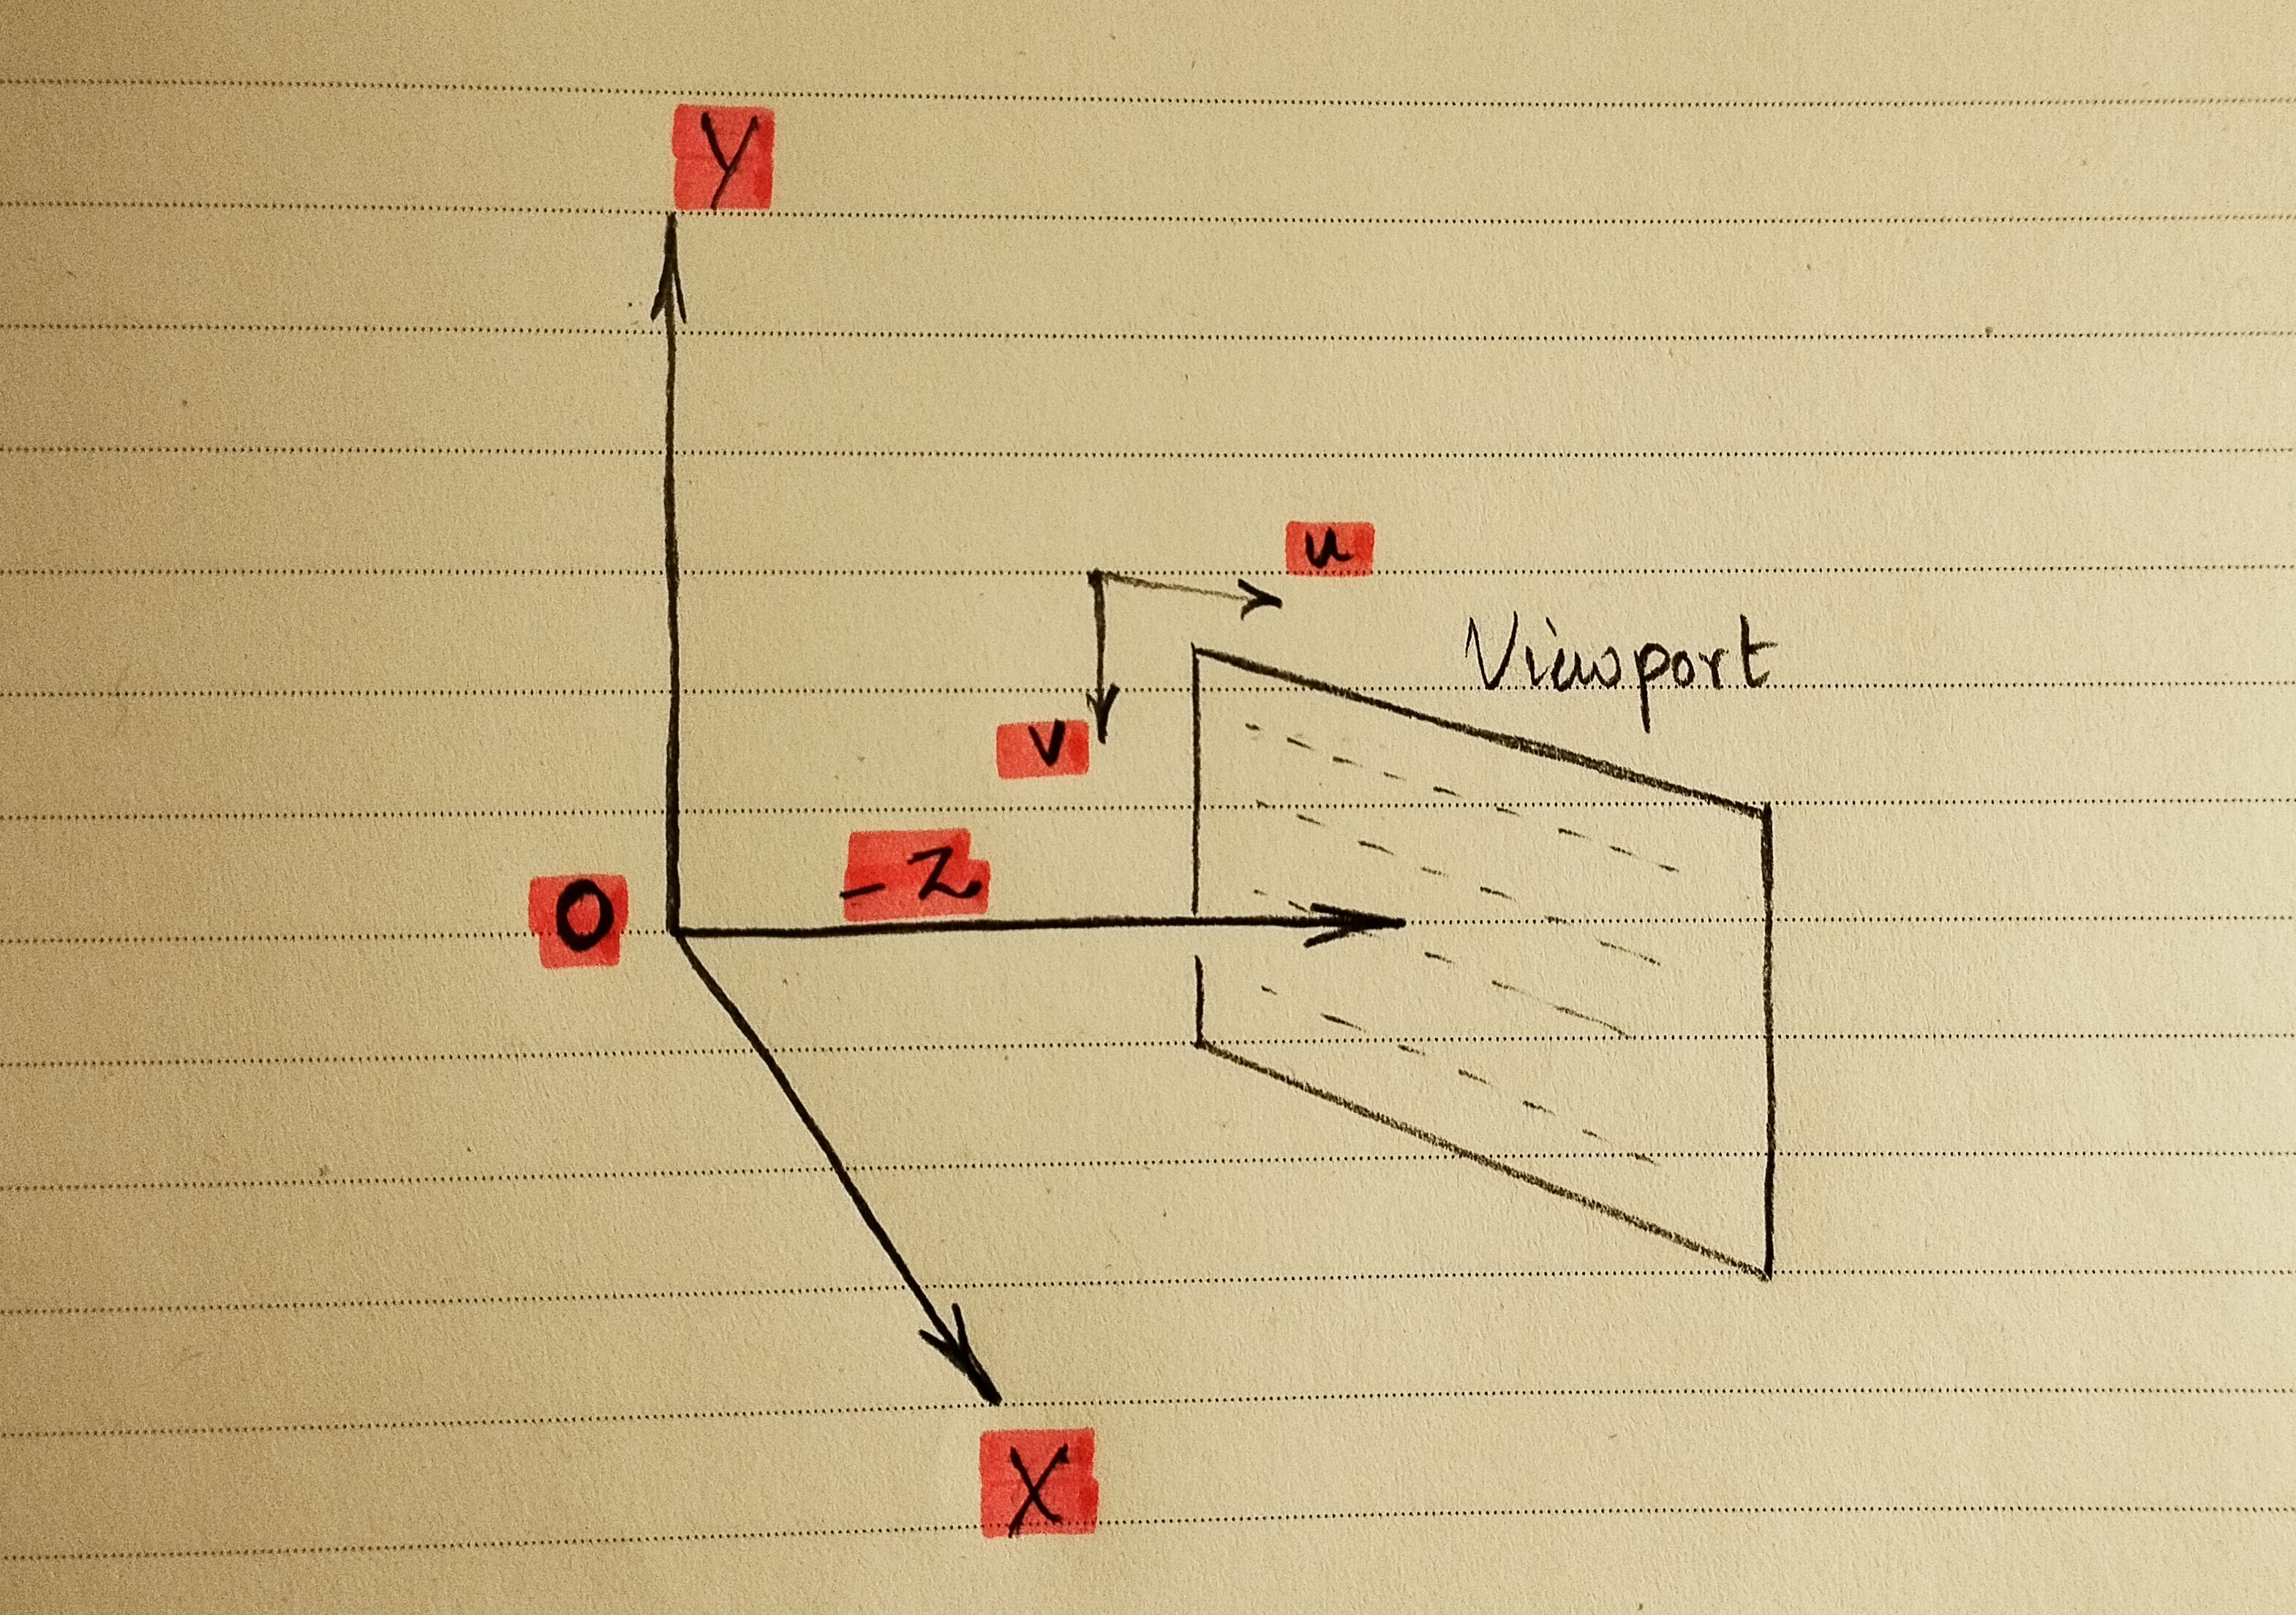 Y
u
Viewport
v
-Z
O
X